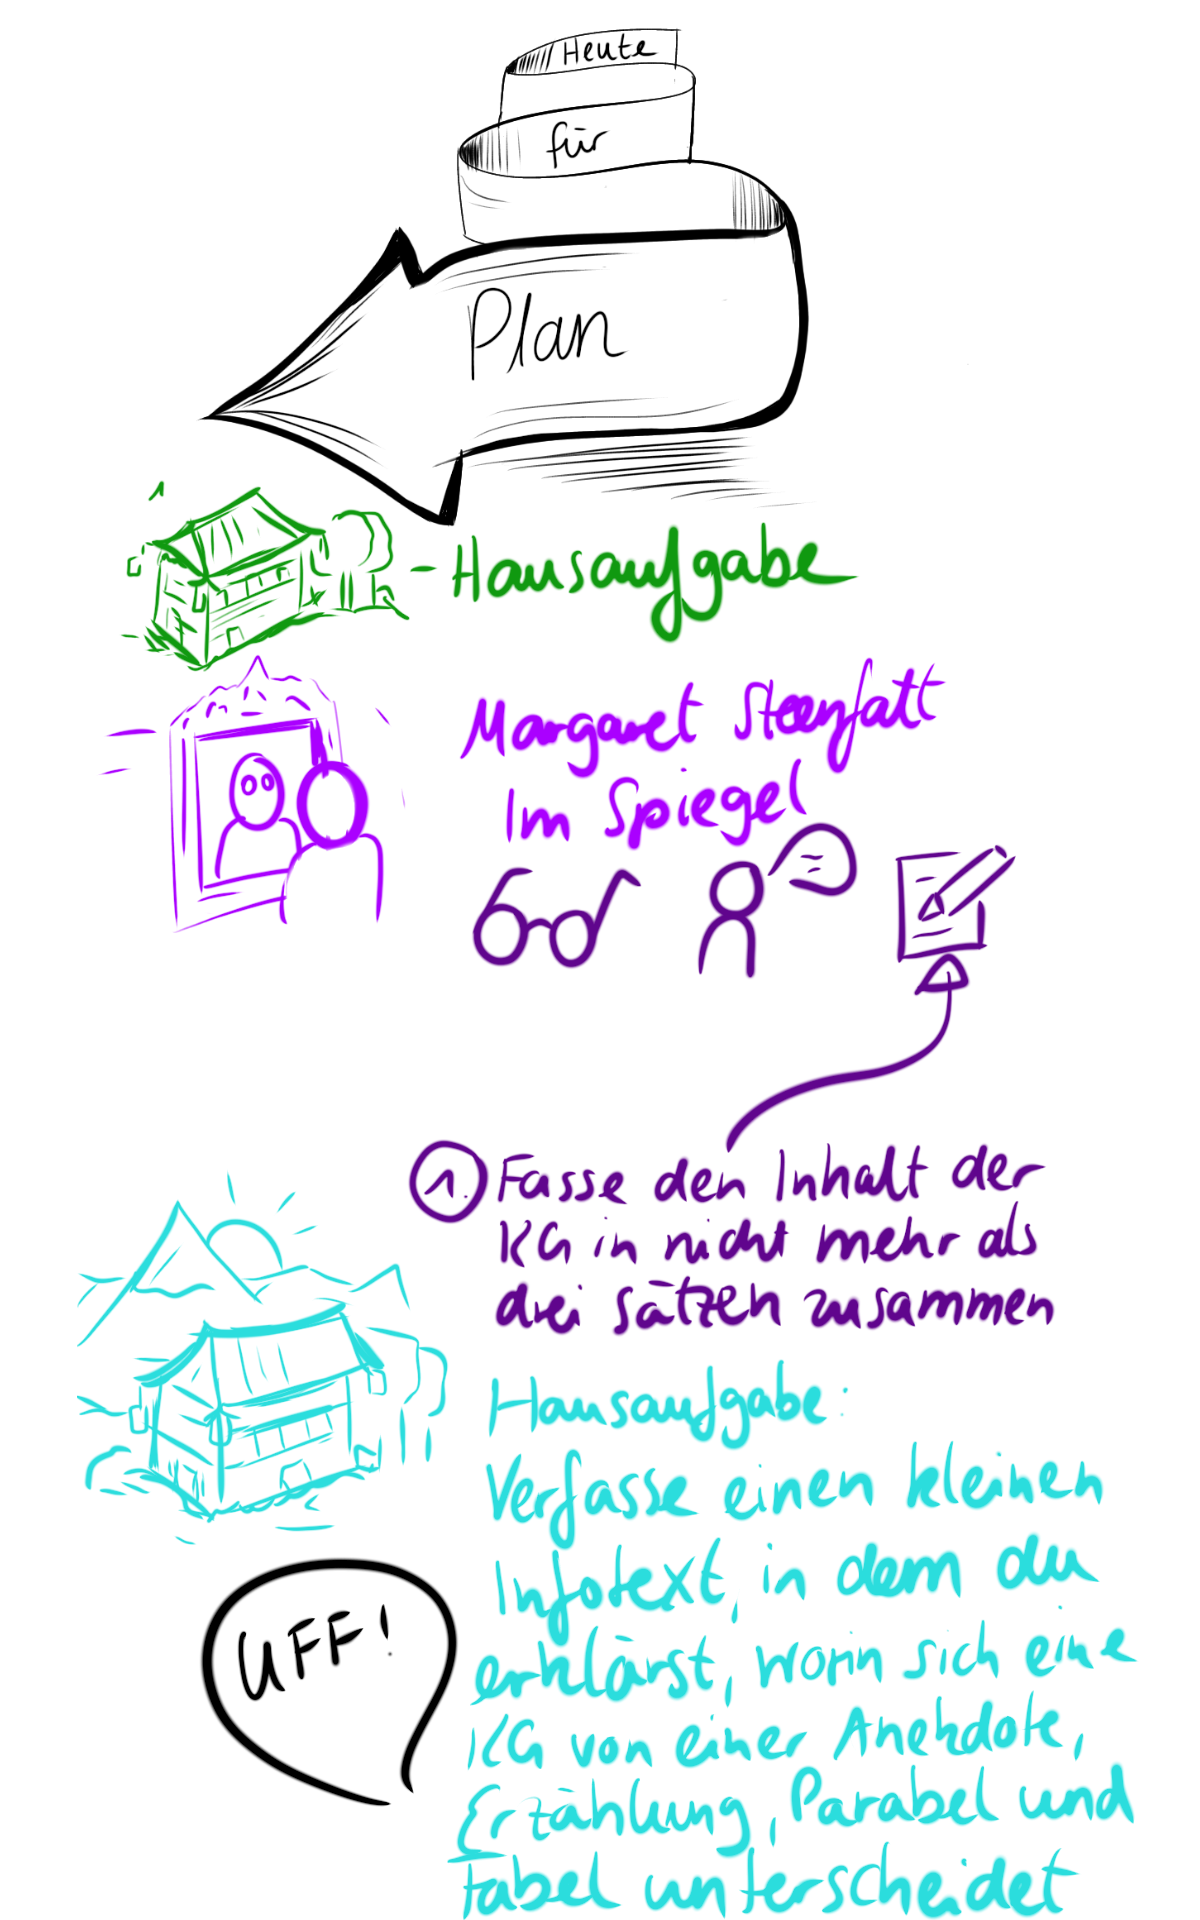 Heute
für
Plan
1
- Hausaufgabe
Margaret Steenfatt
Im Spiegel
1. Fasse den Inhalt der
KG in nicht mehr als
drei Sätzen zusammen
Hausaufgabe:
Verfasse einen kleinen
Infotext, in dem du
erklärst, worin sich eine
KG von einer Anekdote,
Erzählung, Parabel und
Fabel unterscheidet
UFF!